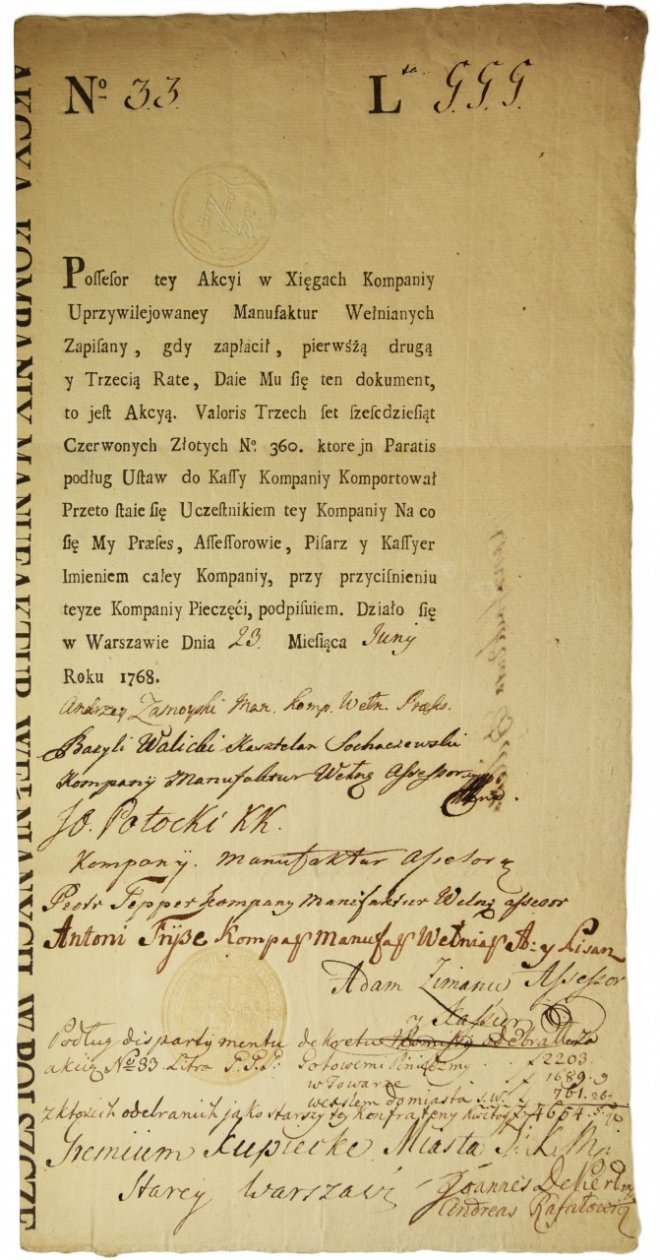 AKCYA KOMPANIY MANUFAKTUR WEŁNIANYCH W POLSZCZE
Nº 33. Lᵗᵃ G.G.G.
Poſſeſor tey Akcyi w Xięgach Kompaniy
Uprzywilejowaney Manufaktur Wełnianych
Zapiſany, gdy zapłacił, pierwśźą drugą
y Trzecią Rate, Daie Mu ſię ten dokument,
to jeſt Akcyą. Valoris Trzech ſet ſzeſcdzieſiąt
Czerwonych Złotych Nº 360. ktore jn Paratis
podług Uſtaw do Kaſſy Kompaniy Komportował
Przeto ſtaie ſię Uczeſtnikiem tey Kompaniy Na co
ſię My Præſes, Aſſeſſorowie, Piſarz y Kaſſyer
Imieniem całey Kompaniy, przy przyciſnieniu
teyze Kompaniy Pieczęći, podpiſuiem. Działo ſię
w Warszawie Dnia 23. Mieſiąca Junij
Roku 1768.
Andrzey Zamoyski Man. Komp. Wełn. Præſes.
Bazyli Walicki Kasztelan Sochaczewski
Kompanij Manufaktur Wełnę Aſſeſsor
Jo. Potocki KK.
Kompanij. Manufaktur Aſſeſor
Piotr Tepper Kompany Manifaktur Wełnę aſſeſsor
Antoni Fryße Kompaſ Manufaſ Wełniaſ A: y Piſarz
Adam Zimanu Aſſeſſor
y Kaſſier
Podług dispartymentu dekretu
akcią No 33 Litra Gotowemi ƒ 2203.
w Towarze ƒ 1689. 9
do miasta 761. 26
z ktorich odebranich jako starszy tey Konfraterny 4654.
Gremium Kupieckie Miasta J. K. Mci
Starey Warszawi Joannes Dekert
Andreas Rafałowicz